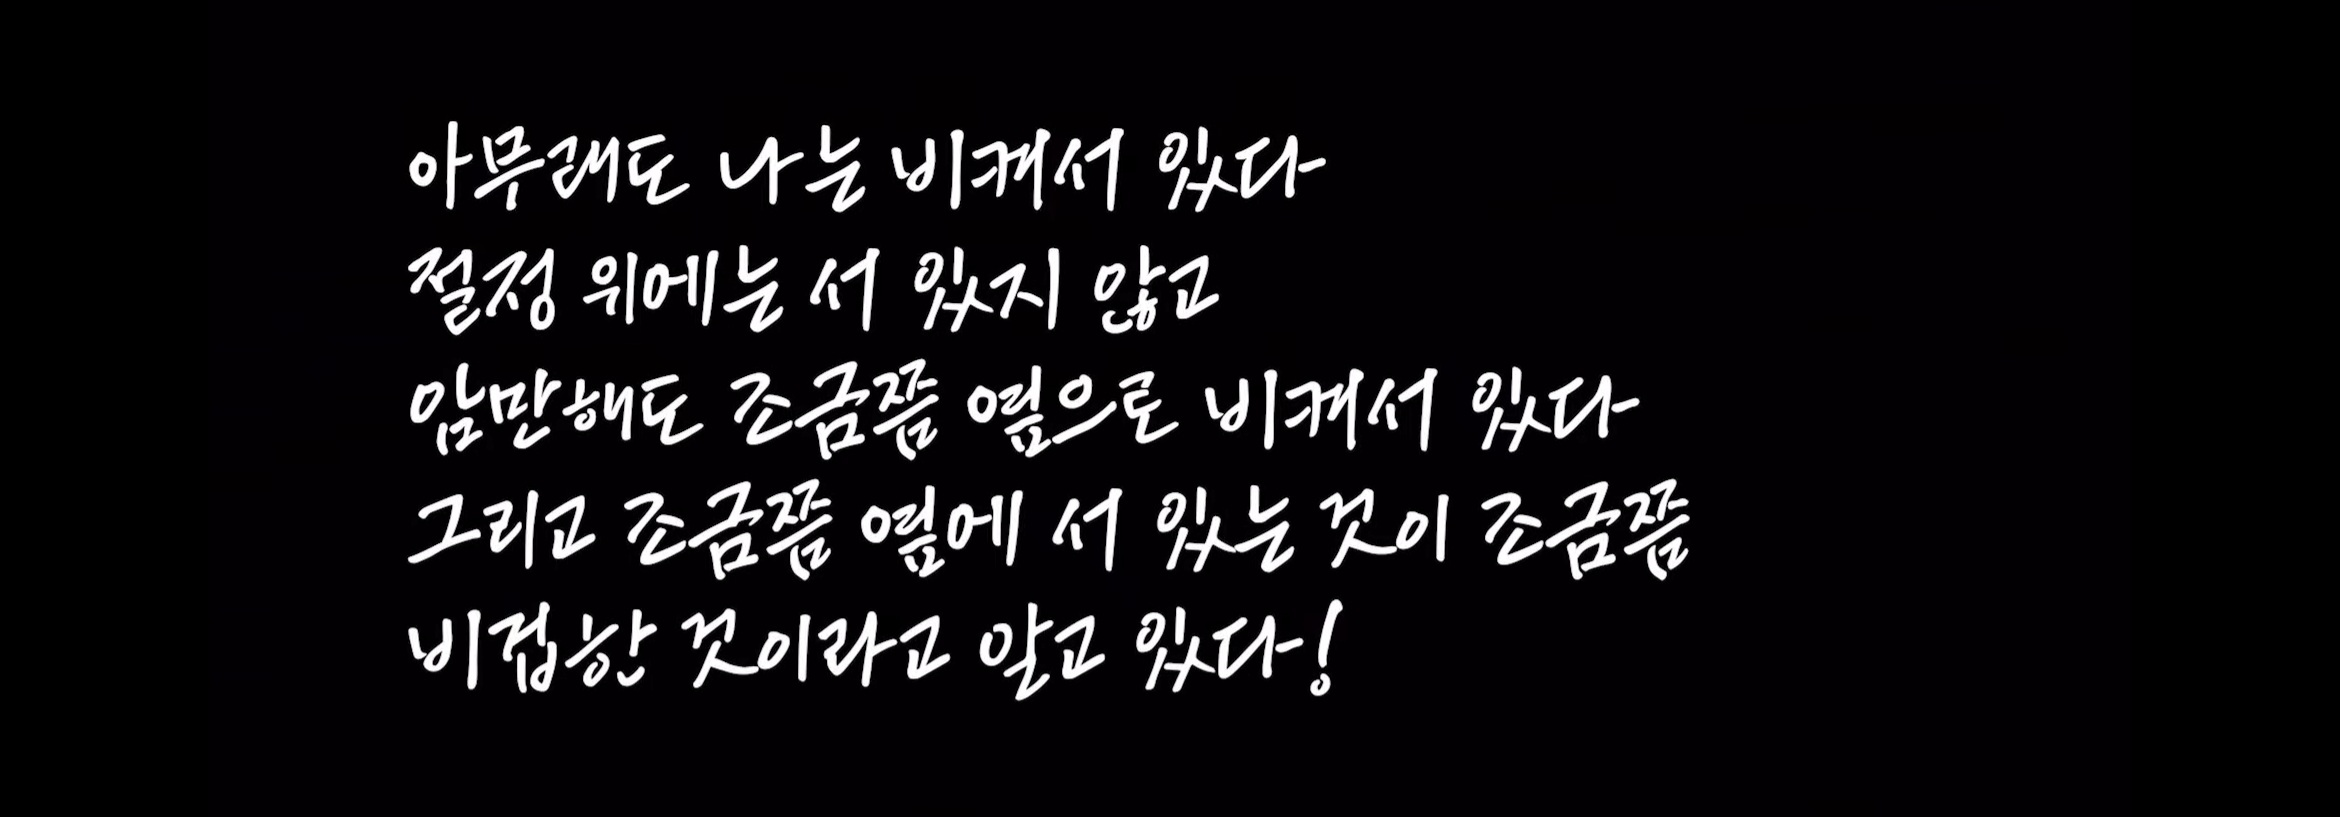 아무래도 나는 비켜서 있다
절정 위에는 서 있지 않고
암만해도 조금쯤 옆으로 비켜서 있다
그리고 조금쯤 옆에 서 있는 것이 조금쯤
비겁한 것이라고 알고 있다!